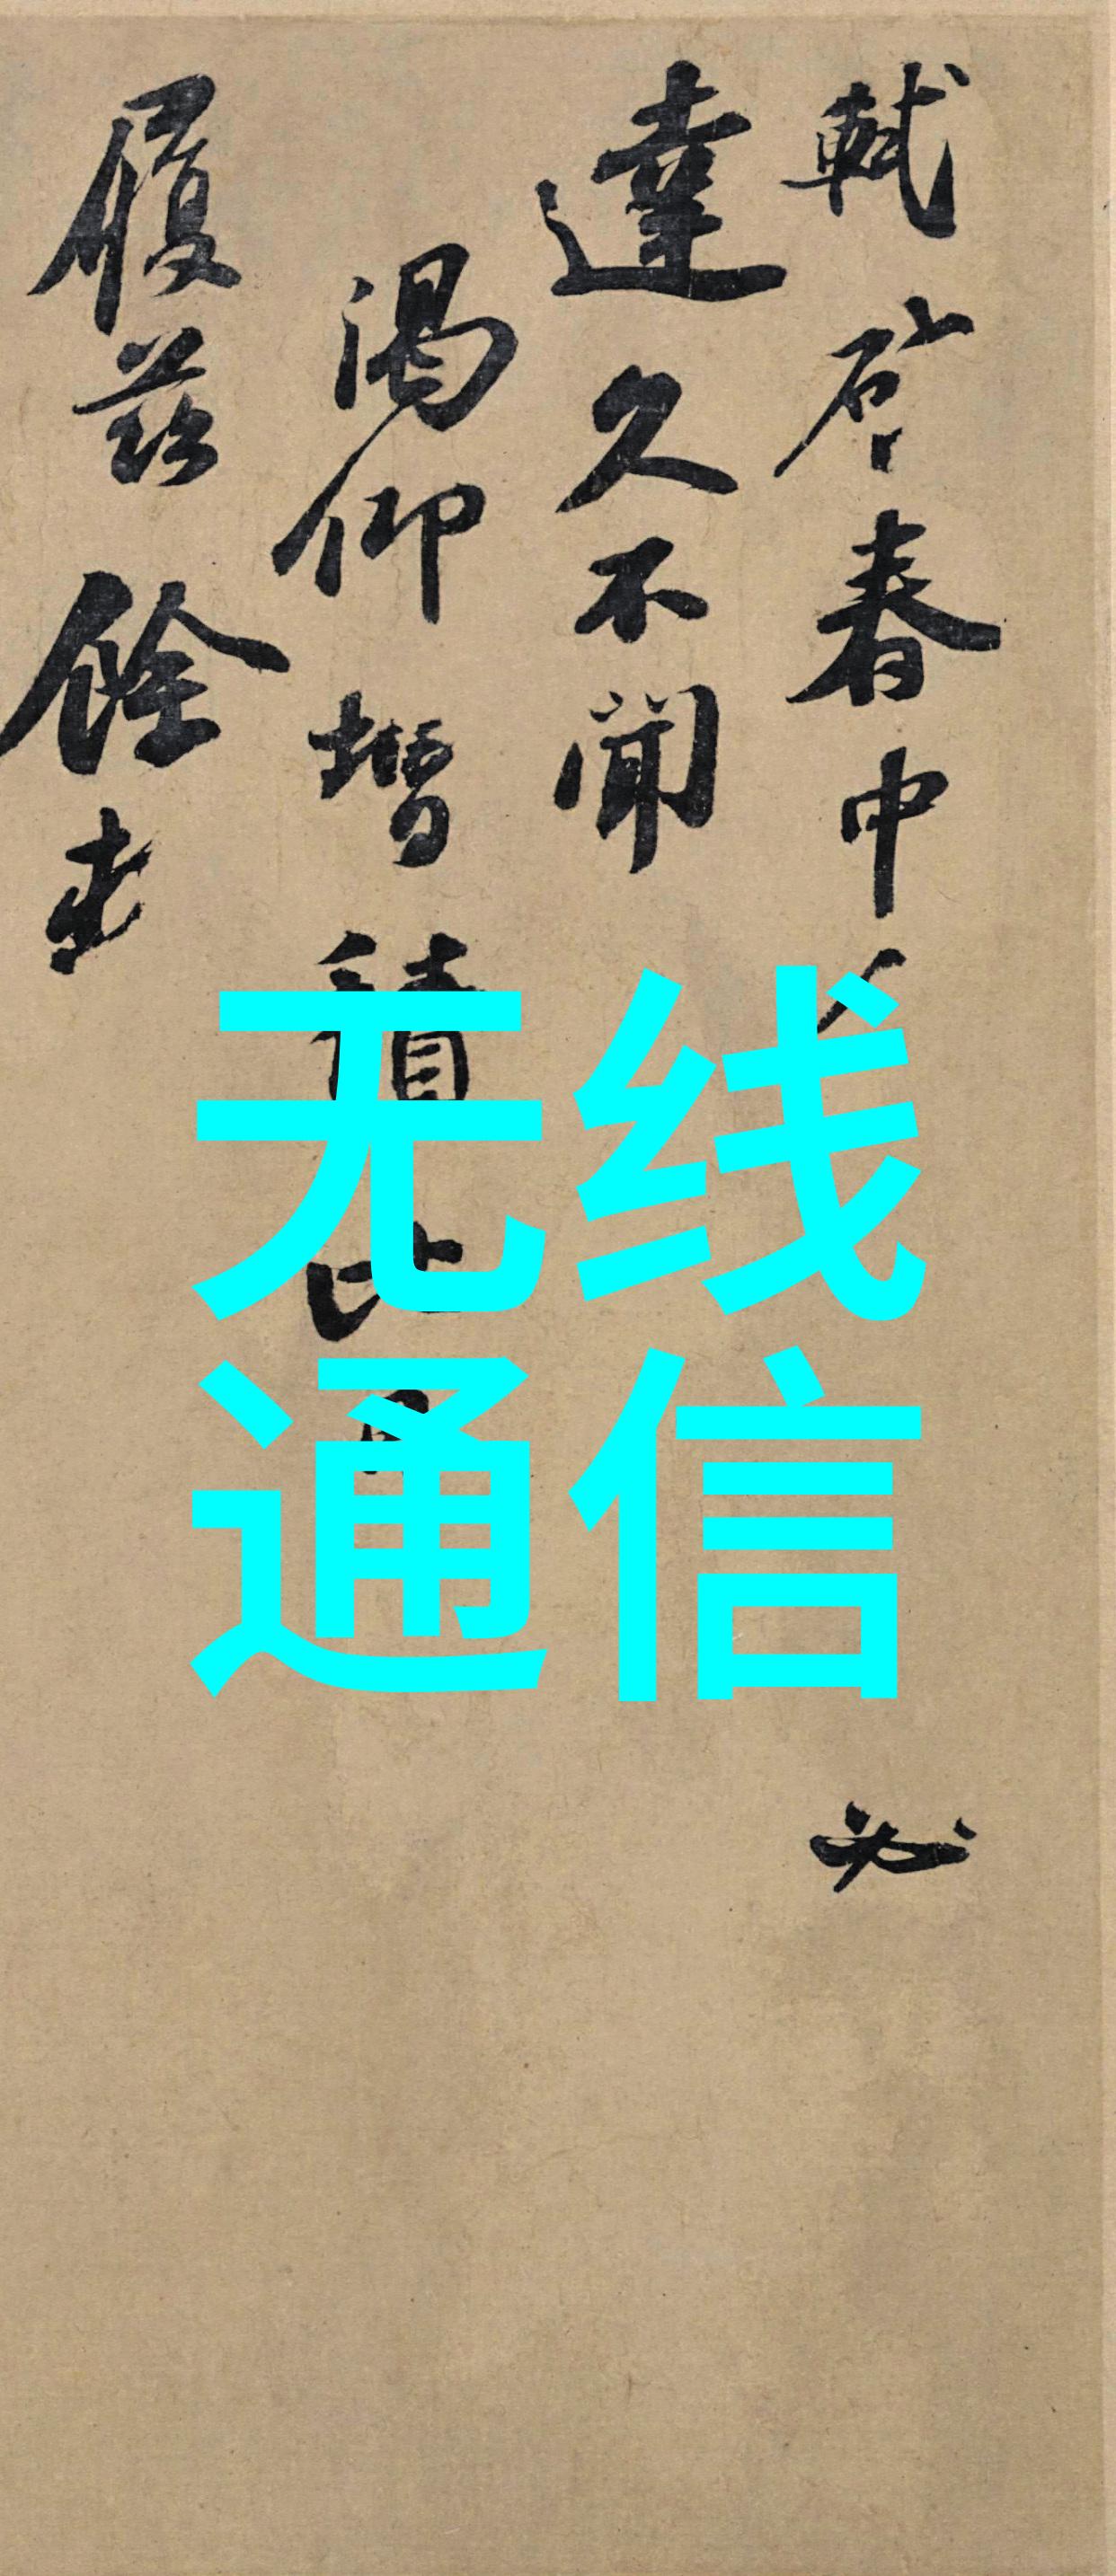 軾啓春中
必
達久不聞
渴仰增積
履兹餘
无线
通信